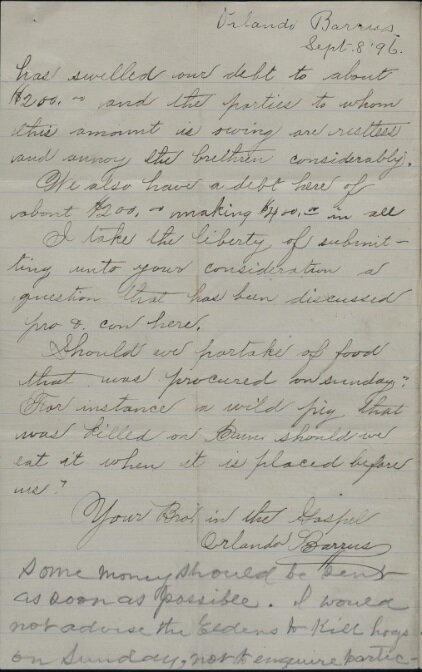 Orlando Barrus
Sept. 8 '96.
has swelled our debt to about
$200.00 and the parties to whom
this amount is owing are restless
and annoy the brethren considerably.
We also have a debt here of
about $200.00 making $400.00 in all
I take the liberty of submit-
ting unto your consideration a
question that has been discussed
pro & con here.
Should we partake of food
that was procured on sunday?
For instance a wild pig that
was killed on should we
eat it when it is placed before
us?
Your Bro. in the Gospel
Orlando Barrus
Some money should be sent
as soon as possible. I would
not advise the Elders to kill hogs
on Sunday, not to enquire partic-